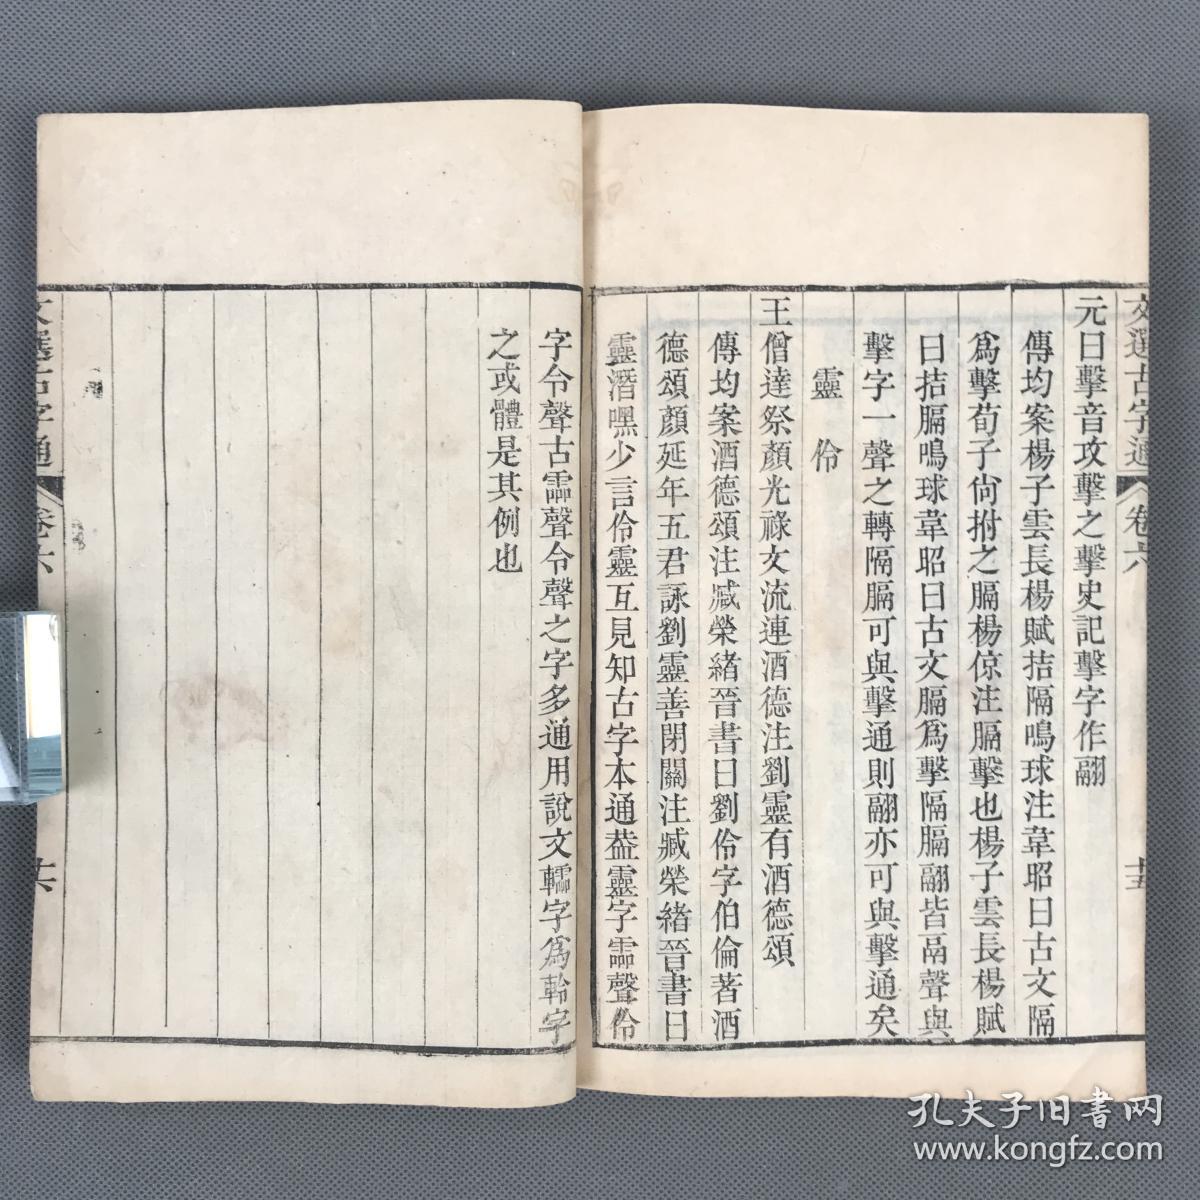 文選古字通 卷六 十五
元曰擊音攻擊之擊史記擊字作翮
傳均案楊子雲長楊賦拮隔鳴球注韋昭曰古文隔
爲擊荀子尙拊之膈楊倞注膈擊也楊子雲長楊賦
曰拮膈鳴球韋昭曰古文膈爲擊隔膈翮皆鬲聲與
擊字一聲之轉隔膈可與擊通則翮亦可與擊通矣
靈 伶
王僧達祭顏光祿文流連酒德注劉靈有酒德頌
傳均案酒德頌注臧榮緒晉書曰劉伶字伯倫著酒
德頌顏延年五君詠劉靈善閉關注臧榮緒晉書曰
靈潛嘿少言伶靈互見知古字本通葢靈字霝聲伶
字令聲古霝聲令聲之字多通用說文轜字爲軨字
之或體是其例也
文選古字通 卷六 十六
孔夫子旧书网
www.kongfz.com